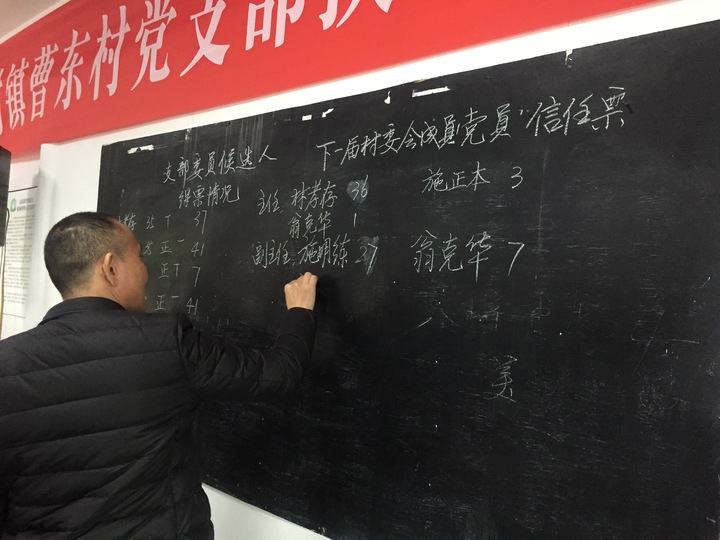 镇曹东村党支部换
支部委员候选人
得票情况
下一届村委会成员党员"信任票
正丅 37
正一 41
正丅 7
正一 41
主任 林孝存 36
施正本 3
翁克华 1
副主任 施明练 37
翁克华 7
美